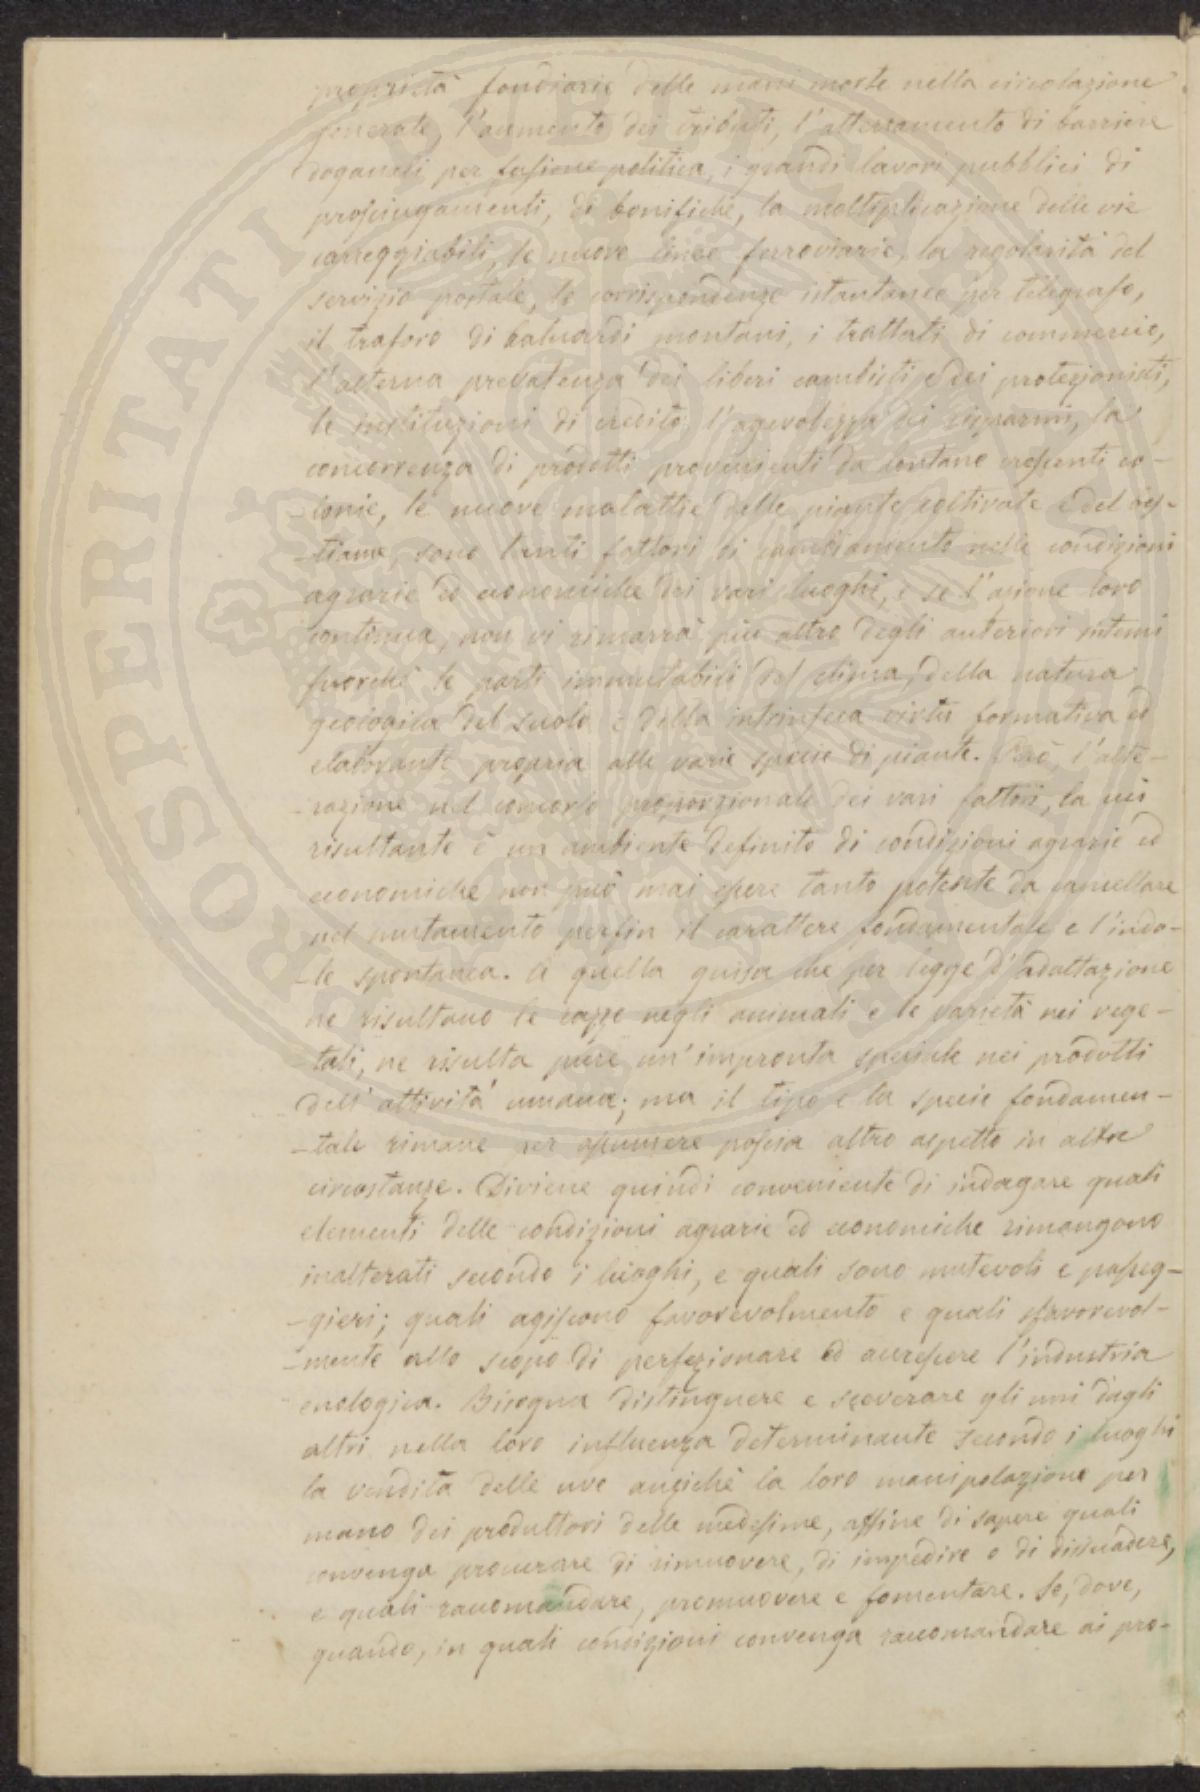 proprietà fondiarie delle mani morte nella circolazione
generale, l'aumento dei tributi, l'atterramento di barriere
doganali per fusione politica, i grandi lavori pubblici di
prosciugamenti, di bonifiche, la moltiplicazione delle vie
carreggiabili, le nuove linee ferroviarie, la regolarità del
servizio postale, le corrispondenze istantanee per telegrafo,
il traforo di baluardi montani, i trattati di commercio,
l'alterna prevalenza dei liberi cambisti e dei protezionisti,
le instituzioni di credito, l'agevolezza dei risparmi, la
concorrenza di prodotti provenienti da lontano crescenti co-
-lonie, le nuove malattie delle piante coltivate e del bes-
-tiame, sono tanti fattori di cambiamento nelle condizioni
agrarie ed economiche dei vari luoghi, e se l'azione loro
continua, non vi rimarrà più altro degli anteriori sistemi
fuorchè le parti immutabili del clima, della natura
geologica del suolo e della intrinseca virtù formativa ed
elaborante propria alle varie specie di piante. Però, l'alte-
-razione nel concorso proporzionale dei vari fattori, la cui
risultante è un ambiente definito di condizioni agrarie ed
economiche non può mai essere tanto potente da cancellare
nel mutamento perfin il carattere fondamentale e l'indo-
-le spontanea. A quella guisa che per legge d'adattazione
ne risultano le razze negli animali e le varietà nei vege-
-tali, ne risulta pure un'impronta speciale nei prodotti
dell'attività umana; ma il tipo e la specie fondamen-
-tale rimane per assumere poscia altro aspetto in altre
circostanze. Diviene quindi conveniente di indagare quali
elementi delle condizioni agrarie ed economiche rimangono
inalterati secondo i luoghi, e quali sono mutevoli e passeg-
-gieri; quali agiscono favorevolmente e quali sfavorevol-
-mente allo scopo di perfezionare ed accrescere l'industria
enologica. Bisogna distinguere e sceverare gli uni dagli
altri nella loro influenza determinante secondo i luoghi
la vendita delle uve anzichè la loro manipolazione per
mano dei produttori delle medesime, affine di sapere quali
convenga procurare di rimuovere, di impedire o di dissuadere,
e quali raccomandare, promuovere e fomentare. Se, dove,
quando, in quali condizioni convenga raccomandare ai pro-
PROSPERITATI PUBLICAE